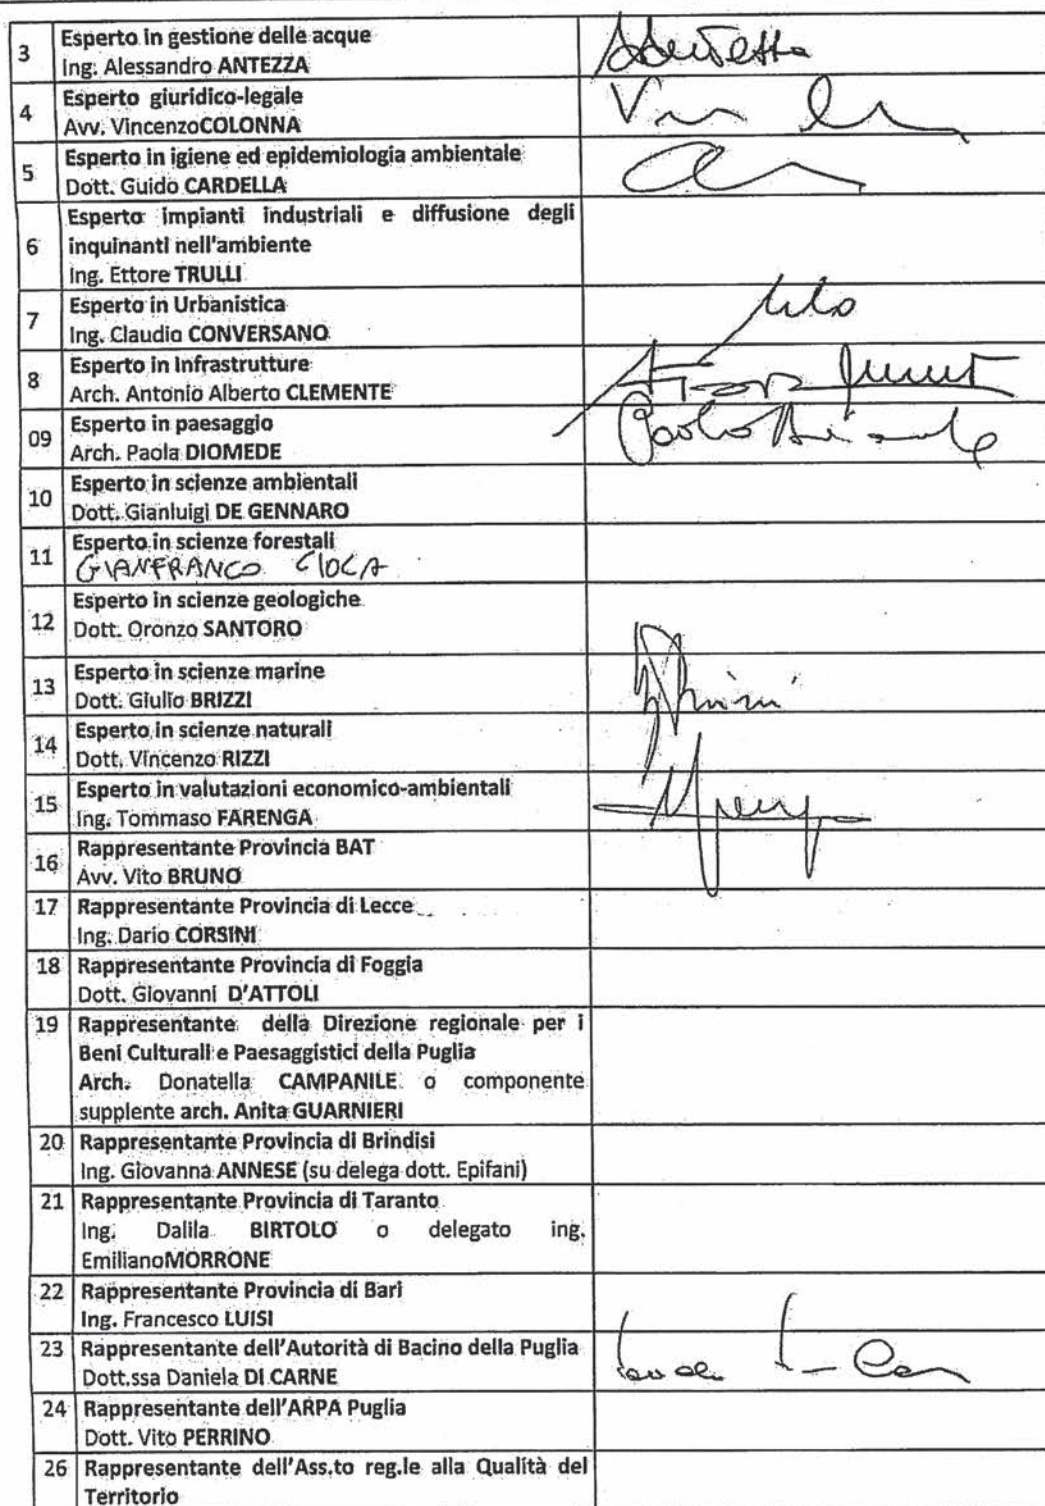 3 Esperto in gestione delle acque
Ing. Alessandro ANTEZZA
4 Esperto giuridico-legale
Avv. VincenzoCOLONNA
5 Esperto in igiene ed epidemiologia ambientale
Dott. Guido CARDELLA
Esperto impianti industriali e diffusione degli
6 inquinanti nell'ambiente
Ing. Ettore TRULLI
7 Esperto in Urbanistica
Ing. Claudio CONVERSANO
8 Esperto in Infrastrutture
Arch. Antonio Alberto CLEMENTE
09 Esperto in paesaggio
Arch. Paola DIOMEDE
10 Esperto in scienze ambientali
Dott. Gianluigi DE GENNARO
11 Esperto in scienze forestali
GIANFRANCO CIOCA
12 Esperto in scienze geologiche
Dott. Oronzo SANTORO
13 Esperto in scienze marine
Dott. Giulio BRIZZI
14 Esperto in scienze naturali
Dott. Vincenzo RIZZI
15 Esperto in valutazioni economico-ambientali
Ing. Tommaso FARENGA
16 Rappresentante Provincia BAT
Avv. Vito BRUNO
17 Rappresentante Provincia di Lecce
Ing. Dario CORSINI
18 Rappresentante Provincia di Foggia
Dott. Giovanni D'ATTOLI
19 Rappresentante della Direzione regionale per i
Beni Culturali e Paesaggistici della Puglia
Arch. Donatella CAMPANILE o componente
supplente arch. Anita GUARNIERI
20 Rappresentante Provincia di Brindisi
Ing. Giovanna ANNESE (su delega dott. Epifani)
21 Rappresentante Provincia di Taranto
Ing. Dalila BIRTOLO o delegato ing.
EmilianoMORRONE
22 Rappresentante Provincia di Bari
Ing. Francesco LUISI
23 Rappresentante dell'Autorità di Bacino della Puglia
Dott.ssa Daniela DI CARNE
24 Rappresentante dell'ARPA Puglia
Dott. Vito PERRINO
26 Rappresentante dell'Ass.to reg.le alla Qualità del
Territorio